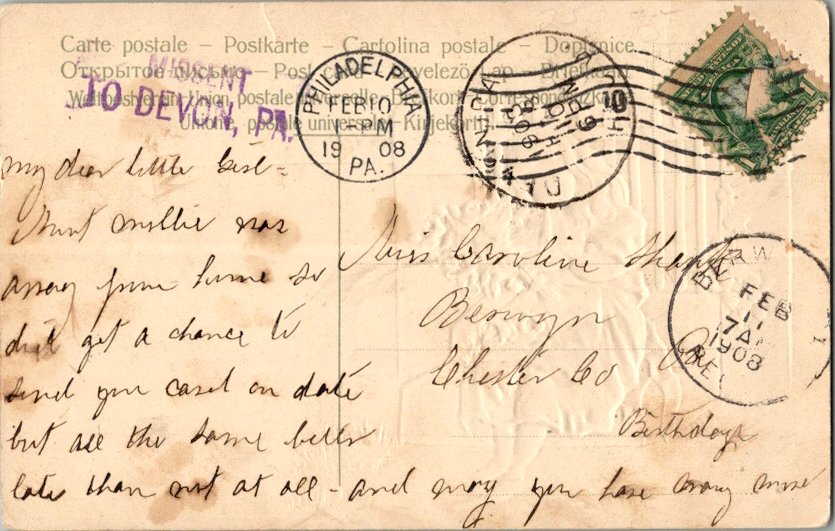 Carte postale – Postkarte – Cartolina postale – Dopisnice
Открытое письмо – Post card – Levelező-Lap – Briefkaart
Weltpostverein Union postale universelle Brefkort Correspondenzkarte
Union postale universelle Kirjekortti
MISSENT
TO DEVON, PA.
PHILADELPHIA
FEB 10
1-PM
19 08
PA.
10
1908
BERWYN
FEB
11
7AM
1908
REC
My dear little Girl–
Aunt Millie was
away from home so
did get a chance to
send you card on date
but all the same better
late than not at all – and may you have many more
Birthdays
Miss Caroline
Berwyn
Chester Co Pa